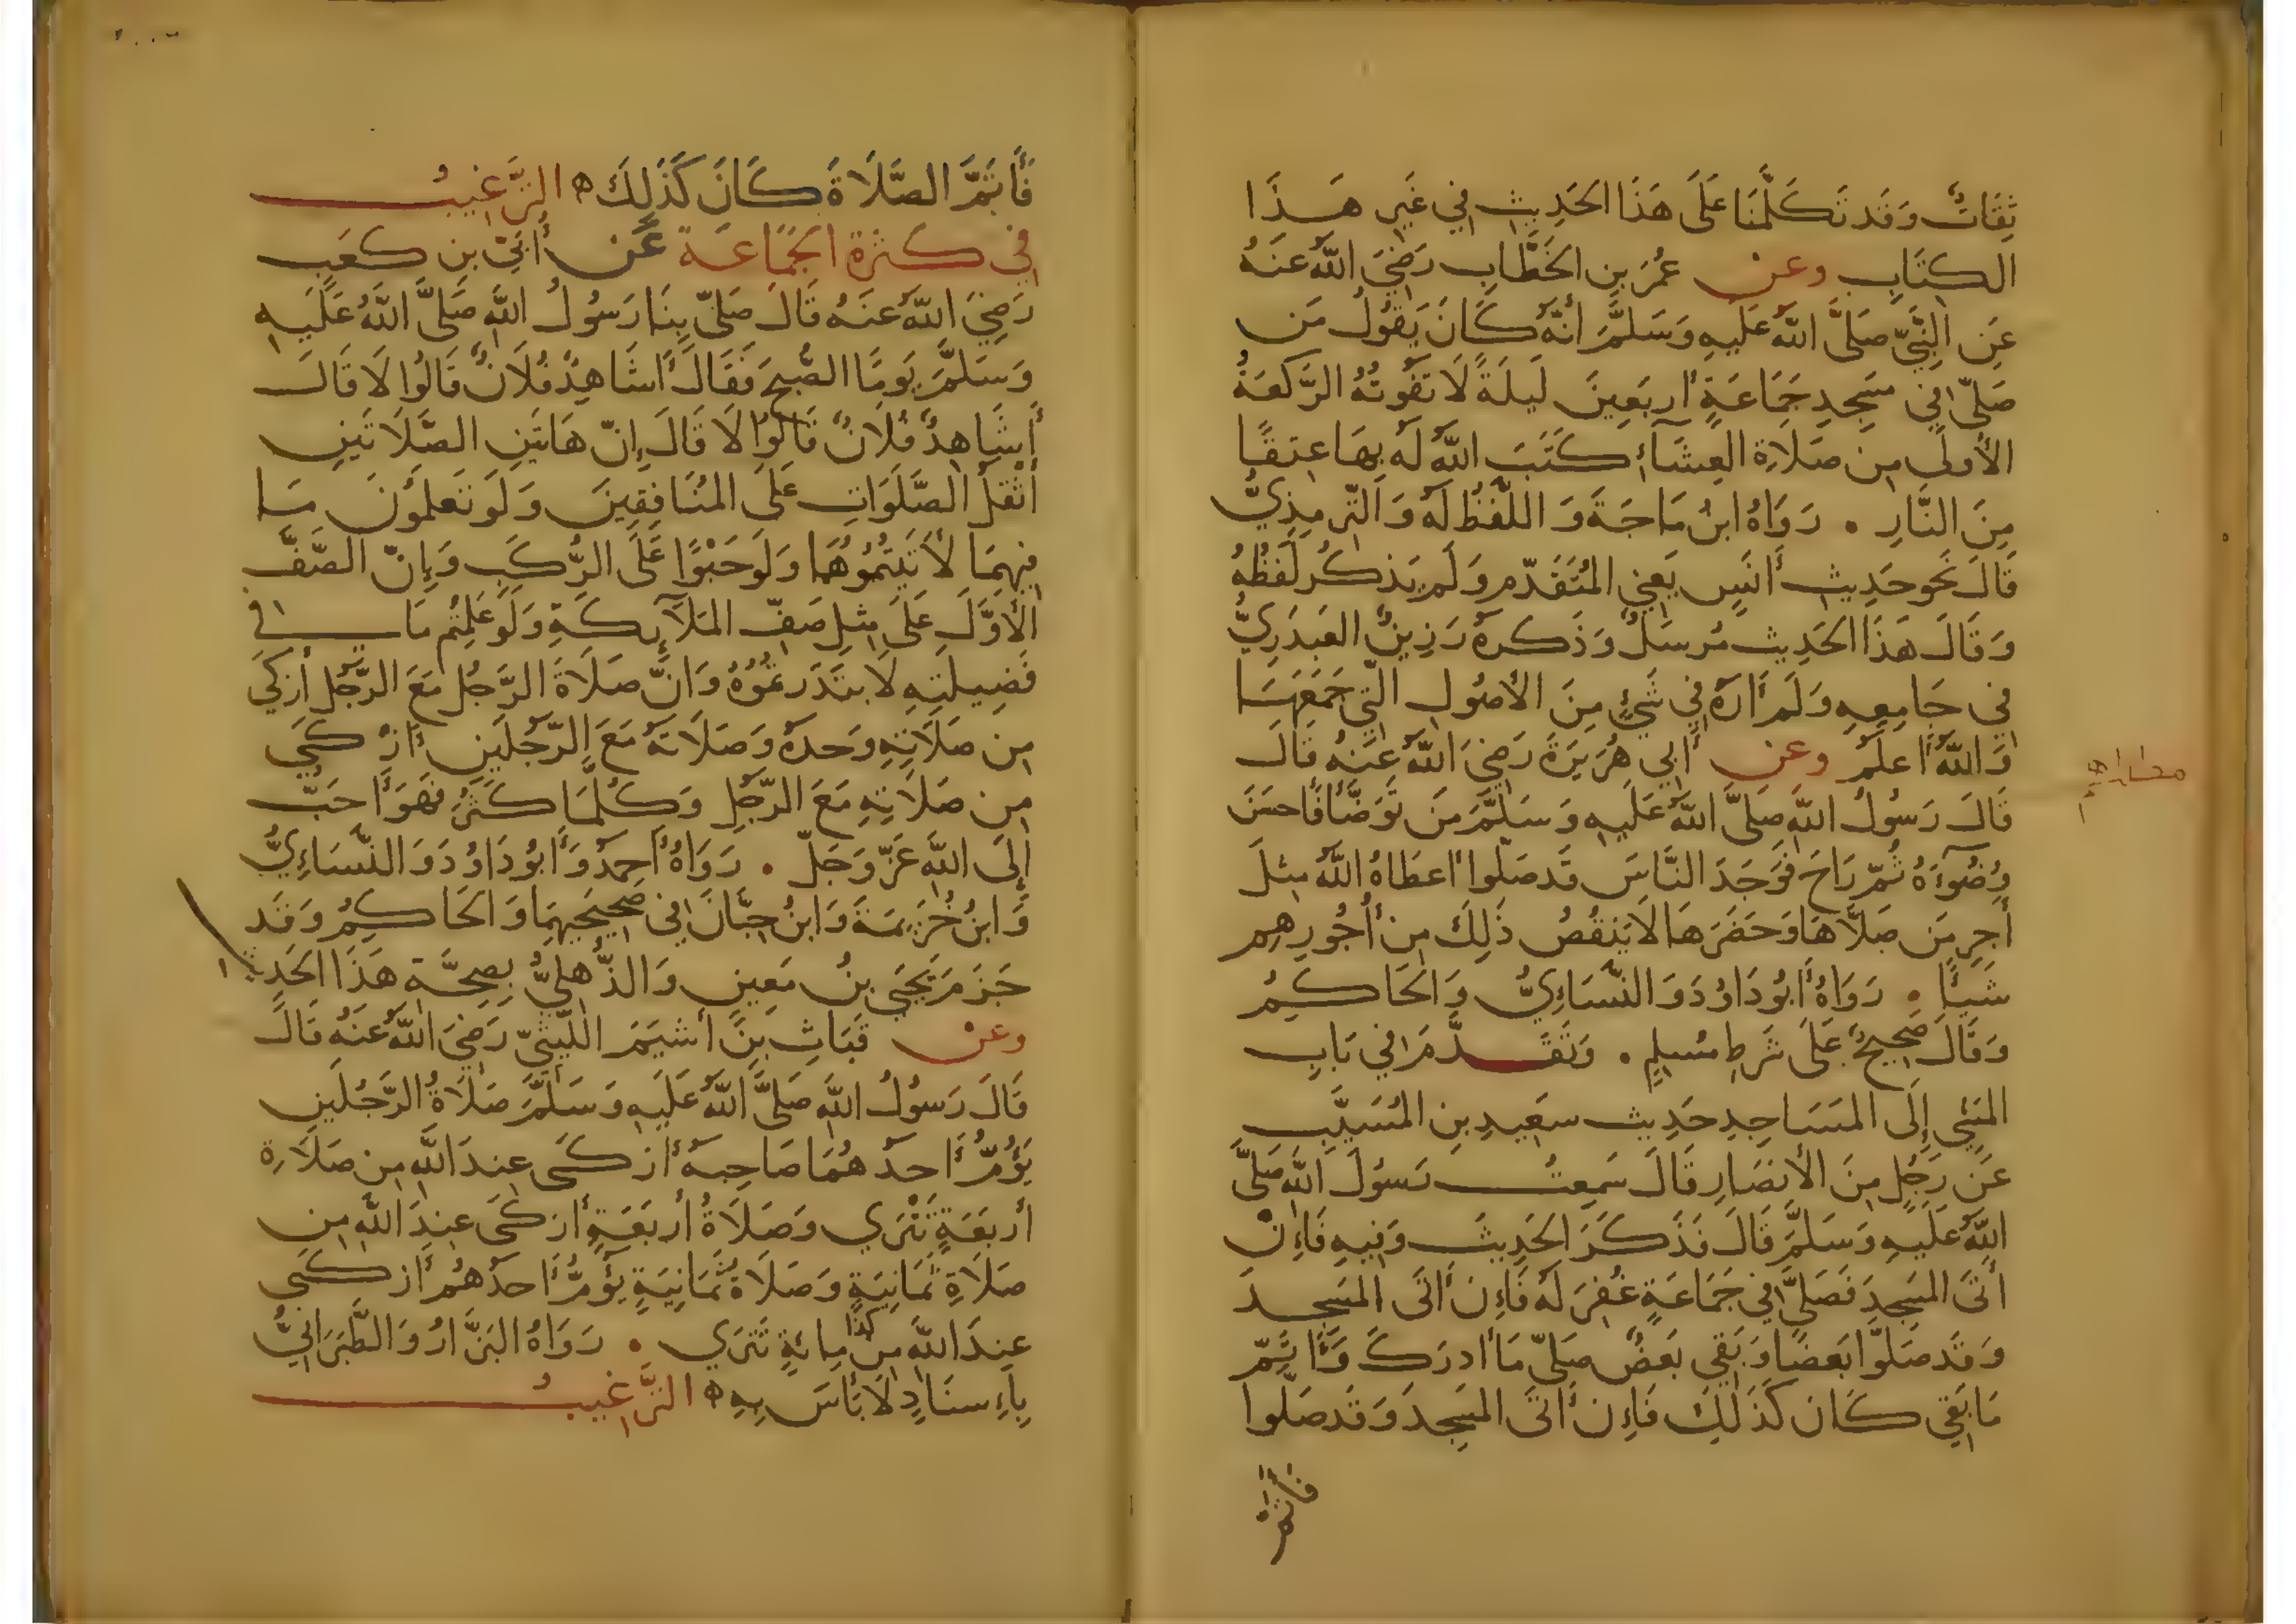 ثِقَاتٌ وَقَد تَكَلَّمنَا عَلَى هَذَا الحَدِيثِ فِي غَيرِ هَـذَا
الكِتَابِ وعن عُمَرَ بنِ الخَطَّابِ رَضِيَ اللَّهُ عَنهُ
عَنِ النَّبِيِّ صَلَّى اللَّهُ عَلَيهِ وَسَلَّمَ أَنَّهُ كَانَ يَقُولُ مَن
صَلَّى فِي مَسجِدِ جَمَاعَةٍ أَربَعِينَ لَيلَةً لَا تَفُوتُهُ الرَّكعَةُ
الأُولَى مِن صَلَاةِ العِشَآءِ كَتَبَ اللَّهُ لَهُ بِهَا عِتقًا
مِنَ النَّارِ . رَوَاهُ ابنُ مَاجَةَ وَاللَّفظُ لَهُ وَالتِّرمِذِيُّ
قَالَ نَحوَ حَدِيثِ أَنَسٍ يَعنِي المُتَقَدِّم وَلَم يَذكُر لَفظَهُ
وَقَالَ هَذَا الحَدِيث مُرسَلٌ وَذَكرهُ رَزِينٌ العَبدَرِيُّ
فِي جَامِعِهِ وَلَم أَرَهُ فِي شَيْءٍ مِنَ الأُصُولِ الَّتِي جَمَعَهَا
وَاللَّهُ أَعلَمُ وعن أَبِي هُرَيرَةَ رَضِيَ اللَّهُ عَنهُ قَالَ
قَالَ رَسُولُ اللَّهِ صَلَّى اللَّهُ عَلَيهِ وَسَلَّمَ مَن تَوَضَّأَ فَأَحسَنَ
وُضُوٓءَهُ ثُمَّ رَاحَ فَوَجَدَ النَّاسَ قَد صَلَّوا أَعطَاهُ اللَّهُ مِثلَ
أَجرِ مَن صَلَّاهَا وَحَضَرَهَا لَا يَنقُصُ ذَلِكَ مِن أُجُورِهِم
شَيئًا . رَوَاهُ أَبُو دَاوُدَ وَالنَّسَائِيُّ وَالحَاكِمُ
وَقَالَ صَحِيحٌ عَلَى شَرطِ مُسلِمٍ . وَتَقَدَّمَ فِي بَابِ
المَشيِ إِلَى المَسَاجِدِ حَدِيث سَعِيدِ بنِ المُسَيَّبِ
عَن رَجُلٍ مِنَ الأَنصَارِ قَالَ سَمِعتُ رَسُولَ اللَّهِ صَلَّى
اللَّهُ عَلَيهِ وَسَلَّمَ قَالَ فَذَكَرَ الحَدِيثَ وَفِيهِ فَإِن
أَتَى المَسجِدَ فَصَلَّى فِي جَمَاعَةٍ غُفِرَ لَهُ فَإِن أَتَى المَسجِدَ
وَقَد صَلَّوا بَعضًا وَبَقِي بَعضٌ صَلَّى مَا أَدرَكَ وَأَتَمَّ
مَا بَقِي كَانَ كَذَلِكَ فَإِن أَتَى المَسجِدَ وَقَد صَلَّوا
فأتم
فَأَتَمَّ الصَّلَاةَ كَانَ كَذَلِكَ ه التَّرغِيبُ
فِي كثرَةِ الجَمَاعَة عَن أُبَيِّ بنِ كَعبٍ
رَضِيَ اللَّهُ عَنهُ قَالَ صَلَّى بِنَا رَسُولُ اللَّهِ صَلَّى اللَّهُ عَلَيهِ
وَسَلَّمَ يَومًا الصُّبحَ فَقَالَ أَشَاهِدٌ فُلَانٌ قَالُوا لَا قَالَ
أَشَاهِدٌ فُلَانٌ قَالُوا لَا قَالَ إِنَّ هَاتَينِ الصَّلَاتَينِ
أَثْقَلُ الصَّلَوَاتِ عَلَى المُنَافِقِينَ وَلَو تَعلَمُونَ مَـا
فِيهِمَا لَأَتَيتُمُوهُمَا وَلَو حَبْوًا عَلَى الرُّكَبِ وَإِنَّ الصَّفَّ
الأَوَّلَ عَلَى مِثلِ صَفِّ المَلَآئِكَةِ وَلَو عَلِمتُم مَا فِي
فَضِيلَتِهِ لَابتَدَرتُمُوهُ وَإِنَّ صَلَاةَ الرَّجُلِ مَعَ الرَّجُلِ أَزكَى
مِن صَلَاتِهِ وَحدَهُ وَصَلَاتَهُ مَعَ الرَّجُلَينِ أَزكَى
مِن صَلَاتِهِ مَعَ الرَّجُلِ وَكُلَّمَا كَثُرَ فَهُوَ أَحَبُّ
إِلَى اللَّهِ عَزَّ وَجَلَّ . رَوَاهُ أَحمَدُ وَأَبُو دَاوُدَ وَالنَّسَائِيُّ
وَابنُ خُزَيمَةَ وَابنُ حِبَّانَ فِي صَحِيحَيهِمَا وَالحَاكِمُ وَقَد
جَزَمَ يَحيَى بنُ مَعِينٍ وَالذُّهلِيُّ بِصِحَّةِ هَذَا الحَدِيث
وعن قَبَاثِ بنِ أَشيَمَ اللَّيثِيِّ رَضِيَ اللَّهُ عَنهُ قَالَ
قَالَ رَسُولُ اللَّهِ صَلَّى اللَّهُ عَلَيهِ وَسَلَّمَ صَلَاةُ الرَّجُلَينِ
يَؤُمُّ أَحدُهُمَا صَاحِبهُ أَزكَى عِندَ اللَّهِ مِن صَلَاةِ
أَربَعَةٍ تَتْرَي وَصَلَاةُ أَربَعَةٍ أَزكَى عِندَ اللَّهِ مِن
صَلَاةِ ثَمَانِيَةٍ وَصَلَاةُ ثَمَانِيَةٍ يَؤُمُّ أَحدُهُم أَزكَى
عِندَ اللَّهِ مِن كذا مِائةٍ تَترَي . رَوَاهُ البَزَّارُ وَالطَّبَرَانِيُّ
بِإِسنَادٍ لَا بَأسَ بِهِ ه التَّرغِيبُ